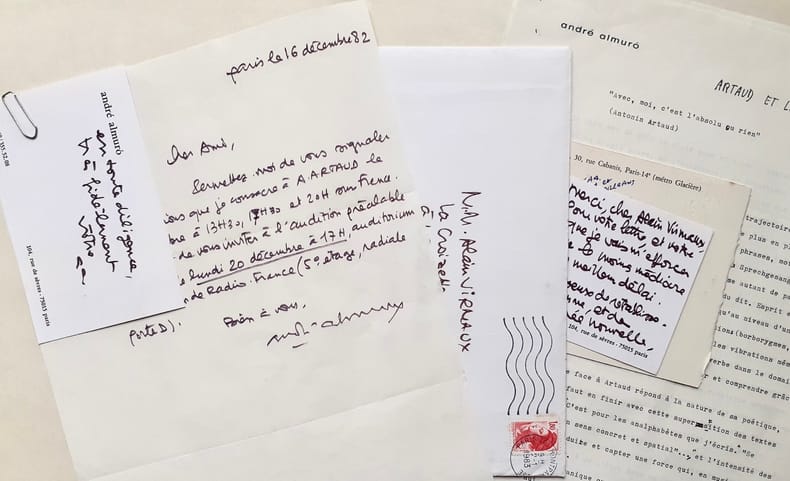 paris le 16 décembre 82
Cher Ami,
Permettez-moi de vous signaler
ions que je consacre à A. ARTAUD le
bre à 13H30, 17H30 et 20H sur France
de vous inviter à l'audition préalable
lundi 20 décembre à 17H, auditorium
de Radio-France (5e étage, radiale
porte D).
Bien à vous,
andré almuró
andré almuro
en toute diligence,
très fidèlement
vôtre
aa.
104, rue de sèvres - 75015 paris
/ 555.52.08
M. Alain VIRMAUX
La Croizette
1,80
1983
andré almuró
ARTAUD ET L
"Avec, moi, c'est l'absolu ou rien"
(Antonin Artaud)
30, rue Cabanis, Paris-14e (métro Glacière)
AA. et
VIRMAUX
merci, cher Alain Virmaux
pour votre lettre, et votre
que je vais m'efforcer
le moins médiocre
meilleur délai.
et de
ée nouvelle,
104, rue de sèvres - 75015 paris
trajectoir
e plus en p
phrases, not
Sprechgesang
me autant de pa
du dit. Esprit e
qu'au niveau d'un
ions (borborygmes,
les vibrations mêm
erbe dans le domai
et comprendre grâc
e face à Artaud répond à la nature de sa poétique,
faut en finir avec cette superstition des textes
C'est pour les analphabètes que j'écris." "Se
sens concret et spatial"... et l'intensité des
duite et capter une force qui, en mus
anique